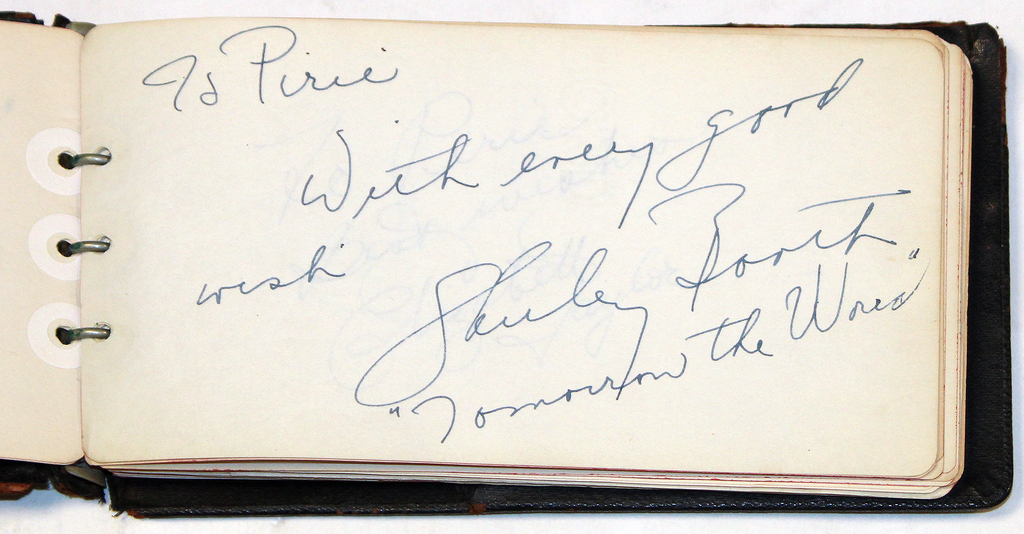 To Pirie
With every good
wish
Shirley Booth
"Tomorrow the World"